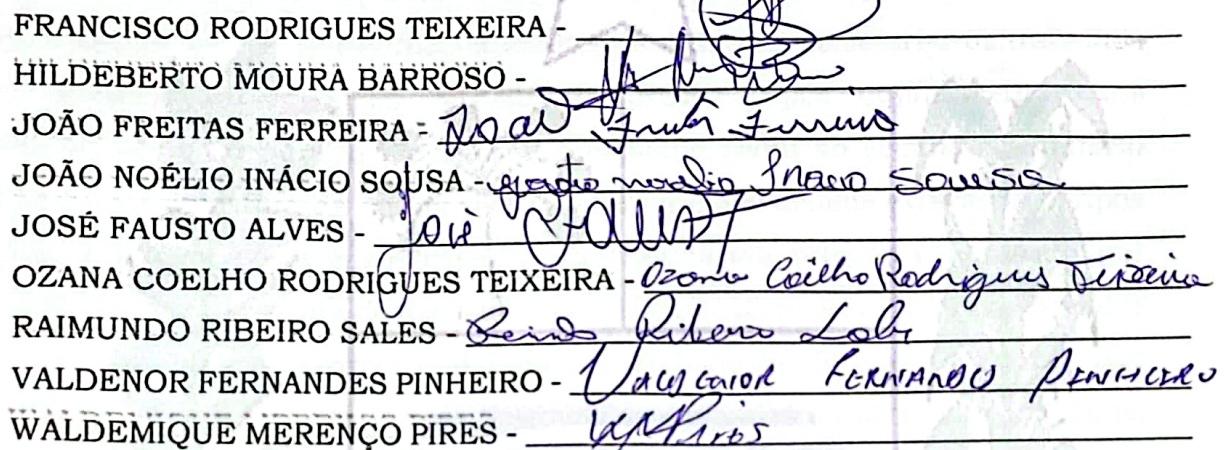 FRANCISCO RODRIGUES TEIXEIRA -
HILDEBERTO MOURA BARROSO -
JOÃO FREITAS FERREIRA - Freitas Ferreira
JOÃO NOÉLIO INÁCIO SOUSA - Inacio Sousa
JOSÉ FAUSTO ALVES - José
OZANA COELHO RODRIGUES TEIXEIRA - Ozana Coelho Rodrigues Teixeira
RAIMUNDO RIBEIRO SALES - Ribeiro
VALDENOR FERNANDES PINHEIRO - FERNANDES PINHEIRO
WALDEMIQUE MERENÇO PIRES -